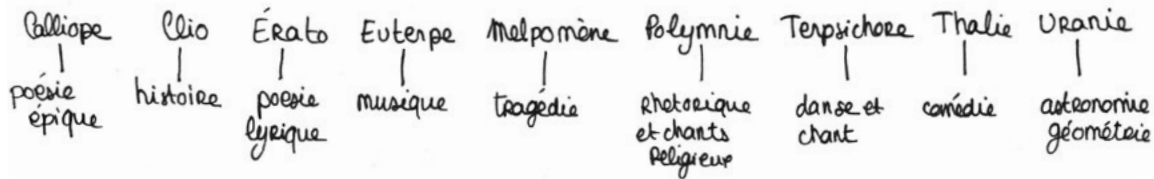 Calliope Clio Érato Euterpe Melpomène Polymnie Terpsichore Thalie Uranie
poésie épique
histoire
poesie lyrique
musique
tragédie
Rhetorique et chants Religieux
danse et chant
comédie
astronomie géométrie